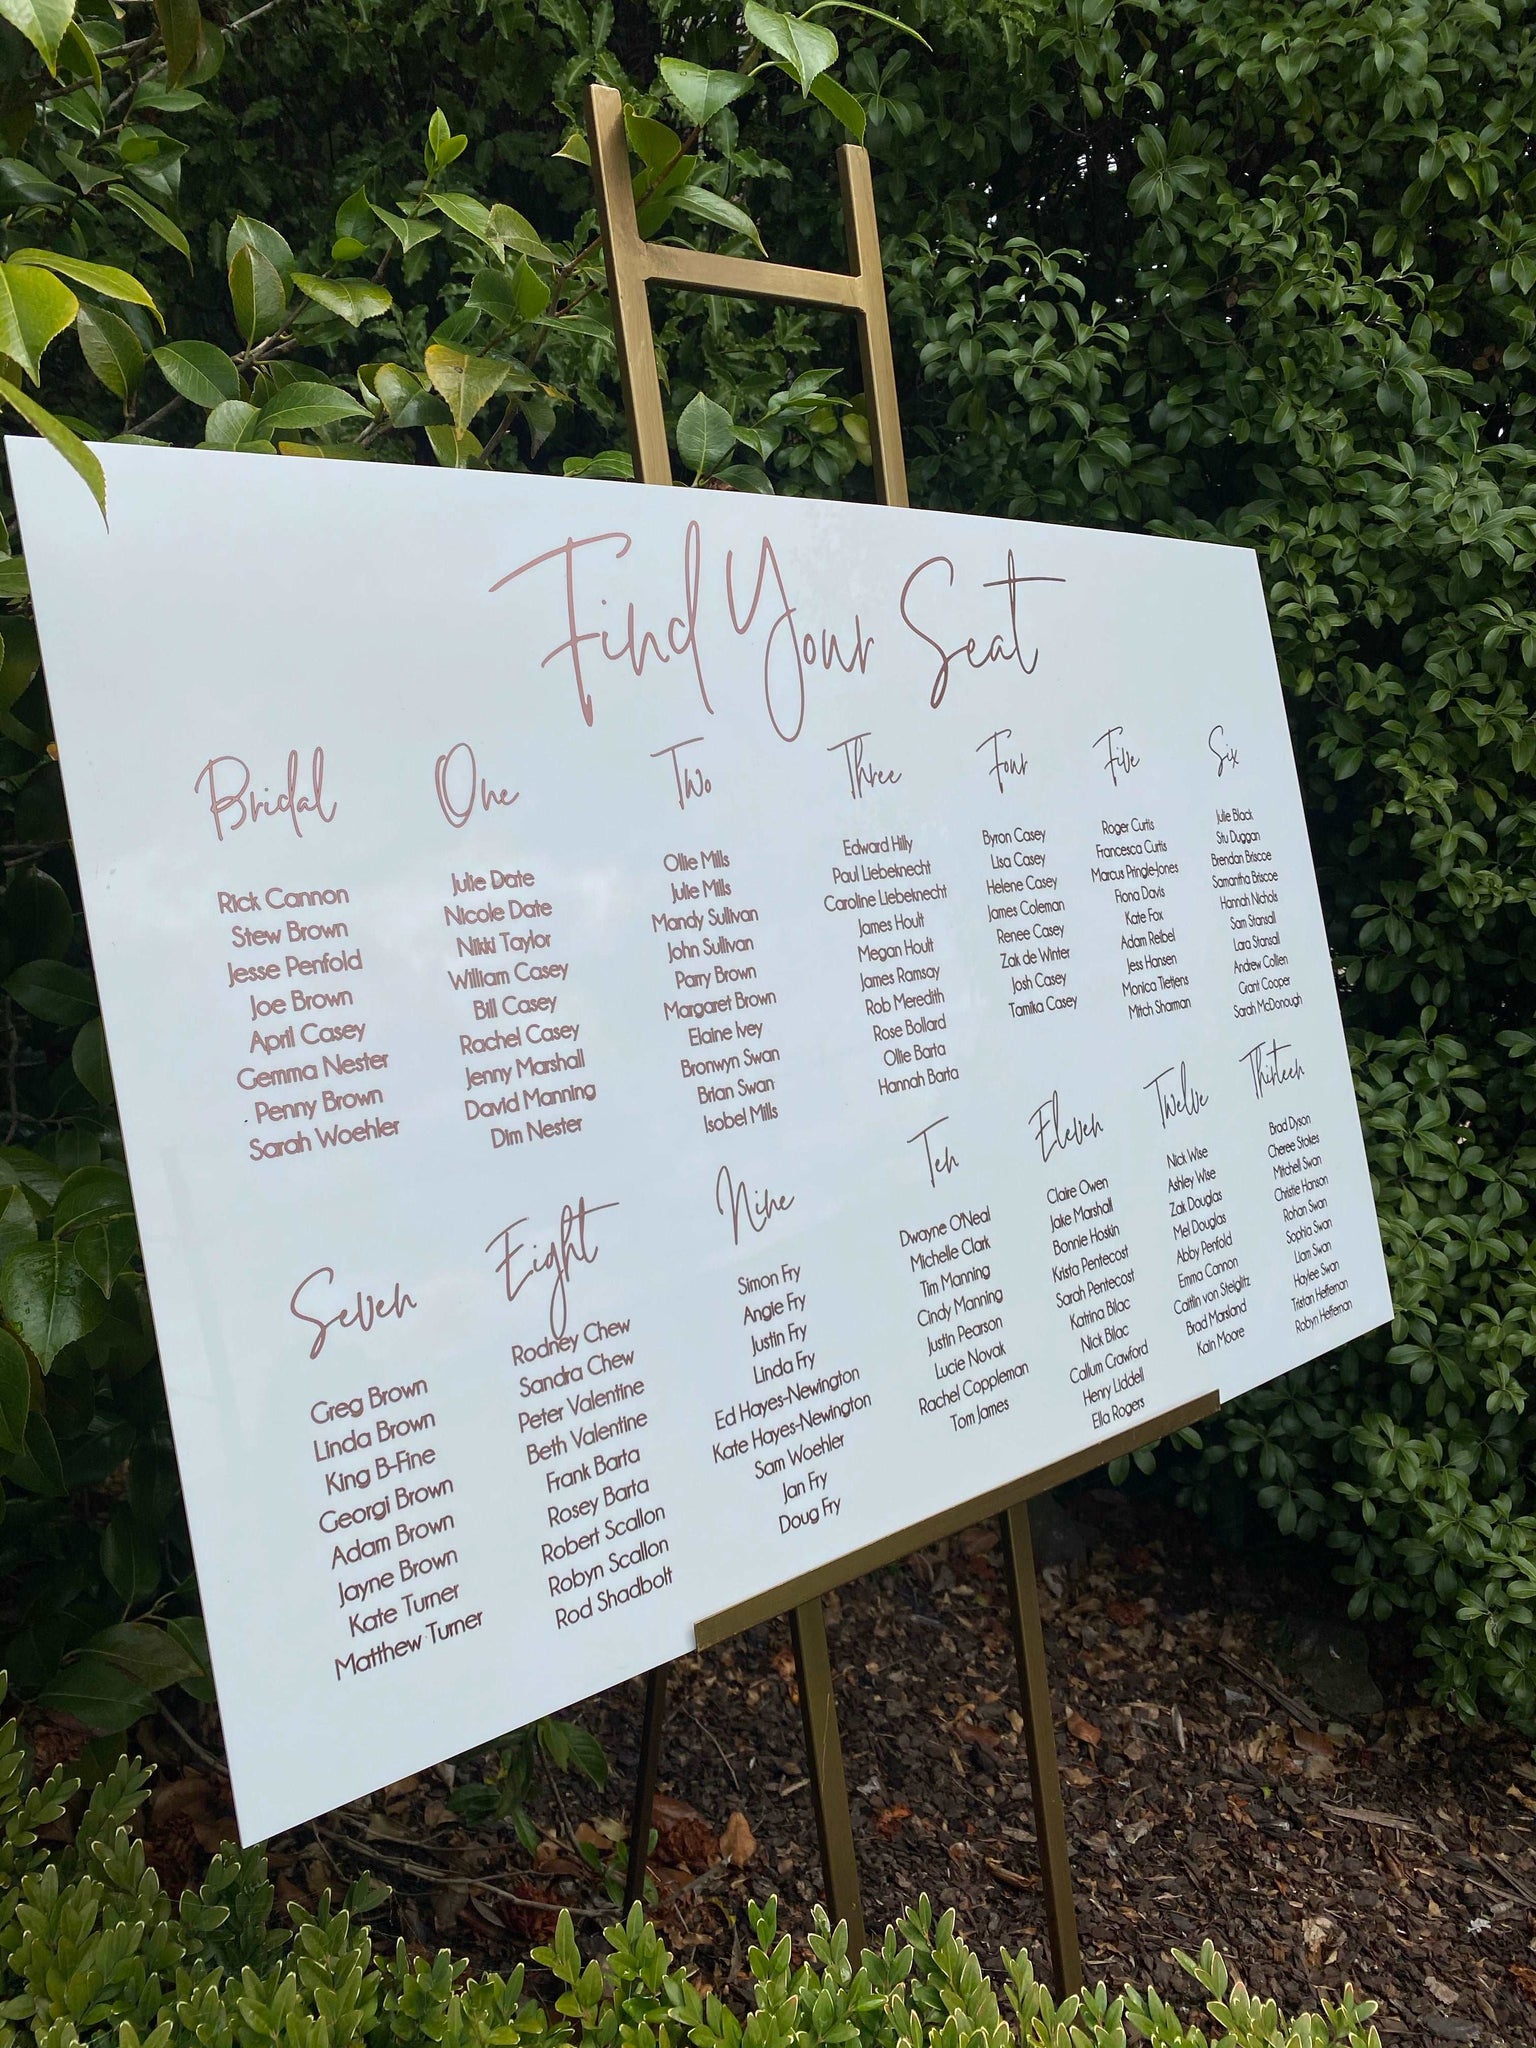 Find Your Seat
Bridal
Rick Cannon
Stew Brown
Jesse Penfold
Joe Brown
April Casey
Gemma Nester
Penny Brown
Sarah Woehler
One
Julie Date
Nicole Date
Nikki Taylor
William Casey
Bill Casey
Rachel Casey
Jenny Marshall
David Manning
Dim Nester
Two
Ollie Mills
Julie Mills
Mandy Sullivan
John Sullivan
Parry Brown
Margaret Brown
Elaine Ivey
Bronwyn Swan
Brian Swan
Isobel Mills
Three
Edward Hilly
Paul Liebeknecht
Caroline Liebeknecht
James Hoult
Megan Hoult
James Ramsay
Rob Meredith
Rose Bollard
Ollie Barta
Hannah Barta
Four
Byron Casey
Lisa Casey
Helene Casey
James Coleman
Renee Casey
Zak de Winter
Josh Casey
Tamika Casey
Five
Roger Curtis
Francesca Curtis
Marcus Pringle-Jones
Fiona Davis
Kate Fox
Adam Reibel
Jess Hansen
Monica Tietjens
Mitch Sharman
Six
Julie Black
Stu Duggan
Brendan Briscoe
Samantha Briscoe
Hannah Nichols
Sam Stansall
Lara Stansall
Andrew Collen
Grant Cooper
Sarah McDonough
Seven
Greg Brown
Linda Brown
King B-Fine
Georgi Brown
Adam Brown
Jayne Brown
Kate Turner
Matthew Turner
Eight
Rodney Chew
Sandra Chew
Peter Valentine
Beth Valentine
Frank Barta
Rosey Barta
Robert Scallon
Robyn Scallon
Rod Shadbolt
Nine
Simon Fry
Angie Fry
Justin Fry
Linda Fry
Ed Hayes-Newington
Kate Hayes-Newington
Sam Woehler
Jan Fry
Doug Fry
Ten
Dwayne O'Neal
Michelle Clark
Tim Manning
Cindy Manning
Justin Pearson
Lucie Novak
Rachel Coppleman
Tom James
Eleven
Claire Owen
Jake Marshall
Bonnie Hoskin
Krista Pentecost
Sarah Pentecost
Katrina Bilac
Nick Bilac
Callum Crawford
Henry Liddell
Ella Rogers
Twelve
Nick Wise
Ashley Wise
Zak Douglas
Mel Douglas
Abby Penfold
Emma Cannon
Caitlin von Steiglitz
Brad Marsland
Kain Moore
Thirteen
Brad Dyson
Cheree Stokes
Mitchell Swan
Christie Hanson
Rohan Swan
Sophia Swan
Liam Swan
Haylee Swan
Tristan Heffernan
Robyn Heffernan